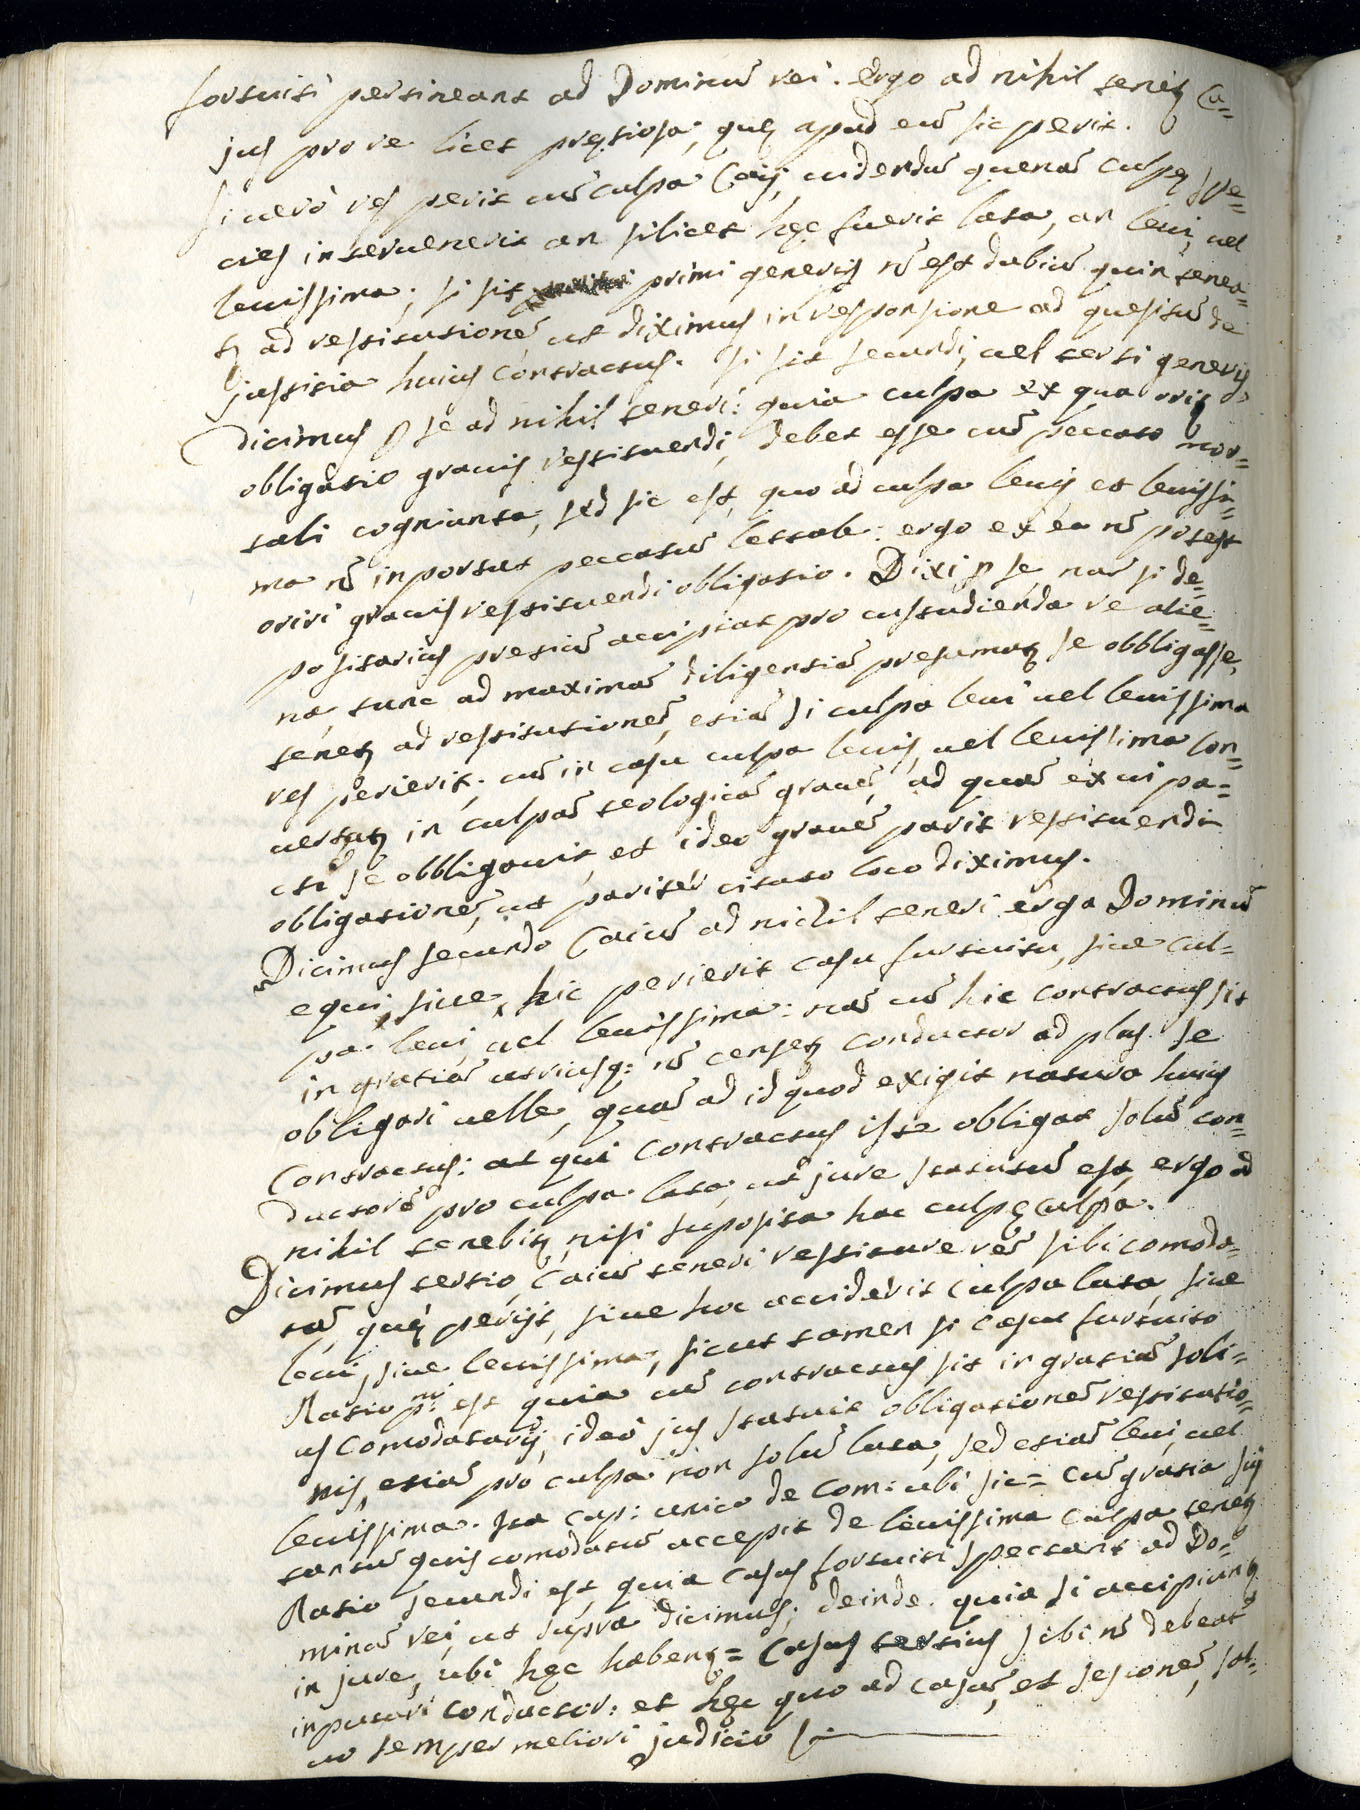 fortuiti pertineant ad Dominũ rei. ergo ad nihil tenetꝫ Ca=
jus pro re licet pretiosa, quę apud eũ sic perit.
si uerò res perit cũ culpa Caij, uidendũ quenã culpę spe=
cies interuenerit an silicet hęc fuerit lata, an leui, uel
leuissima; si sit primi generis nõ est dubiũ quin tenea=
tꝫ ad restitutionẽ ut diximus in responsione ad quesitũ de
justitia huius contractus. si sit secundi, uel tertii generis,
dicimus ꝑ se ad nihil teneri: quia culpa ex qua oritꝫ
obligatio grauis restituendi, debet esse cũ peccato mor=
tali cogniunta, sed sic est, quo ad culpa leuis et leuissi=
ma nõ inportat peccatũ lettale: ergo ex ea nõ potest
oriri grauis restituendi obligatio. Dixi ꝑ se nã si de=
positarius pretiũ accipiat pro custudienda re alie=
na, tunc ad maximã diligentiã presumatꝫ se obbligasse,
tenetꝫ ad restitutionẽ, etiã si culpa leui uel leuissima
res perierit; cũ in casu culpa leuis, uel leuissima con=
uertatꝫ in culpã teologicã grauẽ, ad quã ex ui pa=
cti se obbligauit, et ideo grauẽ parit restituendi
obligationẽ, ut pariter citato loco diximus.
Dicimus secundo Caiũ ad nichil teneri erga Dominũ
equi, siue hic perierit casu furtuitu, siue cul=
pa leui, uel leuissima: nã cũ hic contractus sit
in gratiã utriusq: nõ censetꝫ conductor ad plus se
obligari uelle, quã ad id quod exigit natura huius
Contractus: at qui contractus iste obligat solũ con=
ductorẽ pro culpa lata, ut jure statutũ est, ergo ad
nihil tenebitꝫ nisi suposita hac culpę culpa.
Dicimus tertio, Caiũ teneri restituere rẽ sibi comoda=
tã, quę perijt, siue hoc acciderit culpa lata, siue
leui, siue leuissima, sicut tamen si casu furtuito
Ratio p:ⁿⁱ est quia cũ contractus sit in gratiã soli=
us comodatarij, ideò jus statuit obligationẽ restitutio=
nis, etiã pro culpa non solũ lata, sed etiã leui, uel
leuissima. Ita cap: unico de com: ubi sic= Cũ gratia sui
tantũ quis comodatũ accepit de leuissima culpa tenetꝫ
Ratio secundi est, quia casus fortuiti spectant ad Do=
minũ rei, ut supra dicimus; deinde quia si accipiuntꝫ
in jure, ubi hęc habentꝫ= Casus tertius sibi nõ debeat
inputari conductor: et hęc quo ad casũ, et sesionẽ, sal=
uo semper meliori judicio